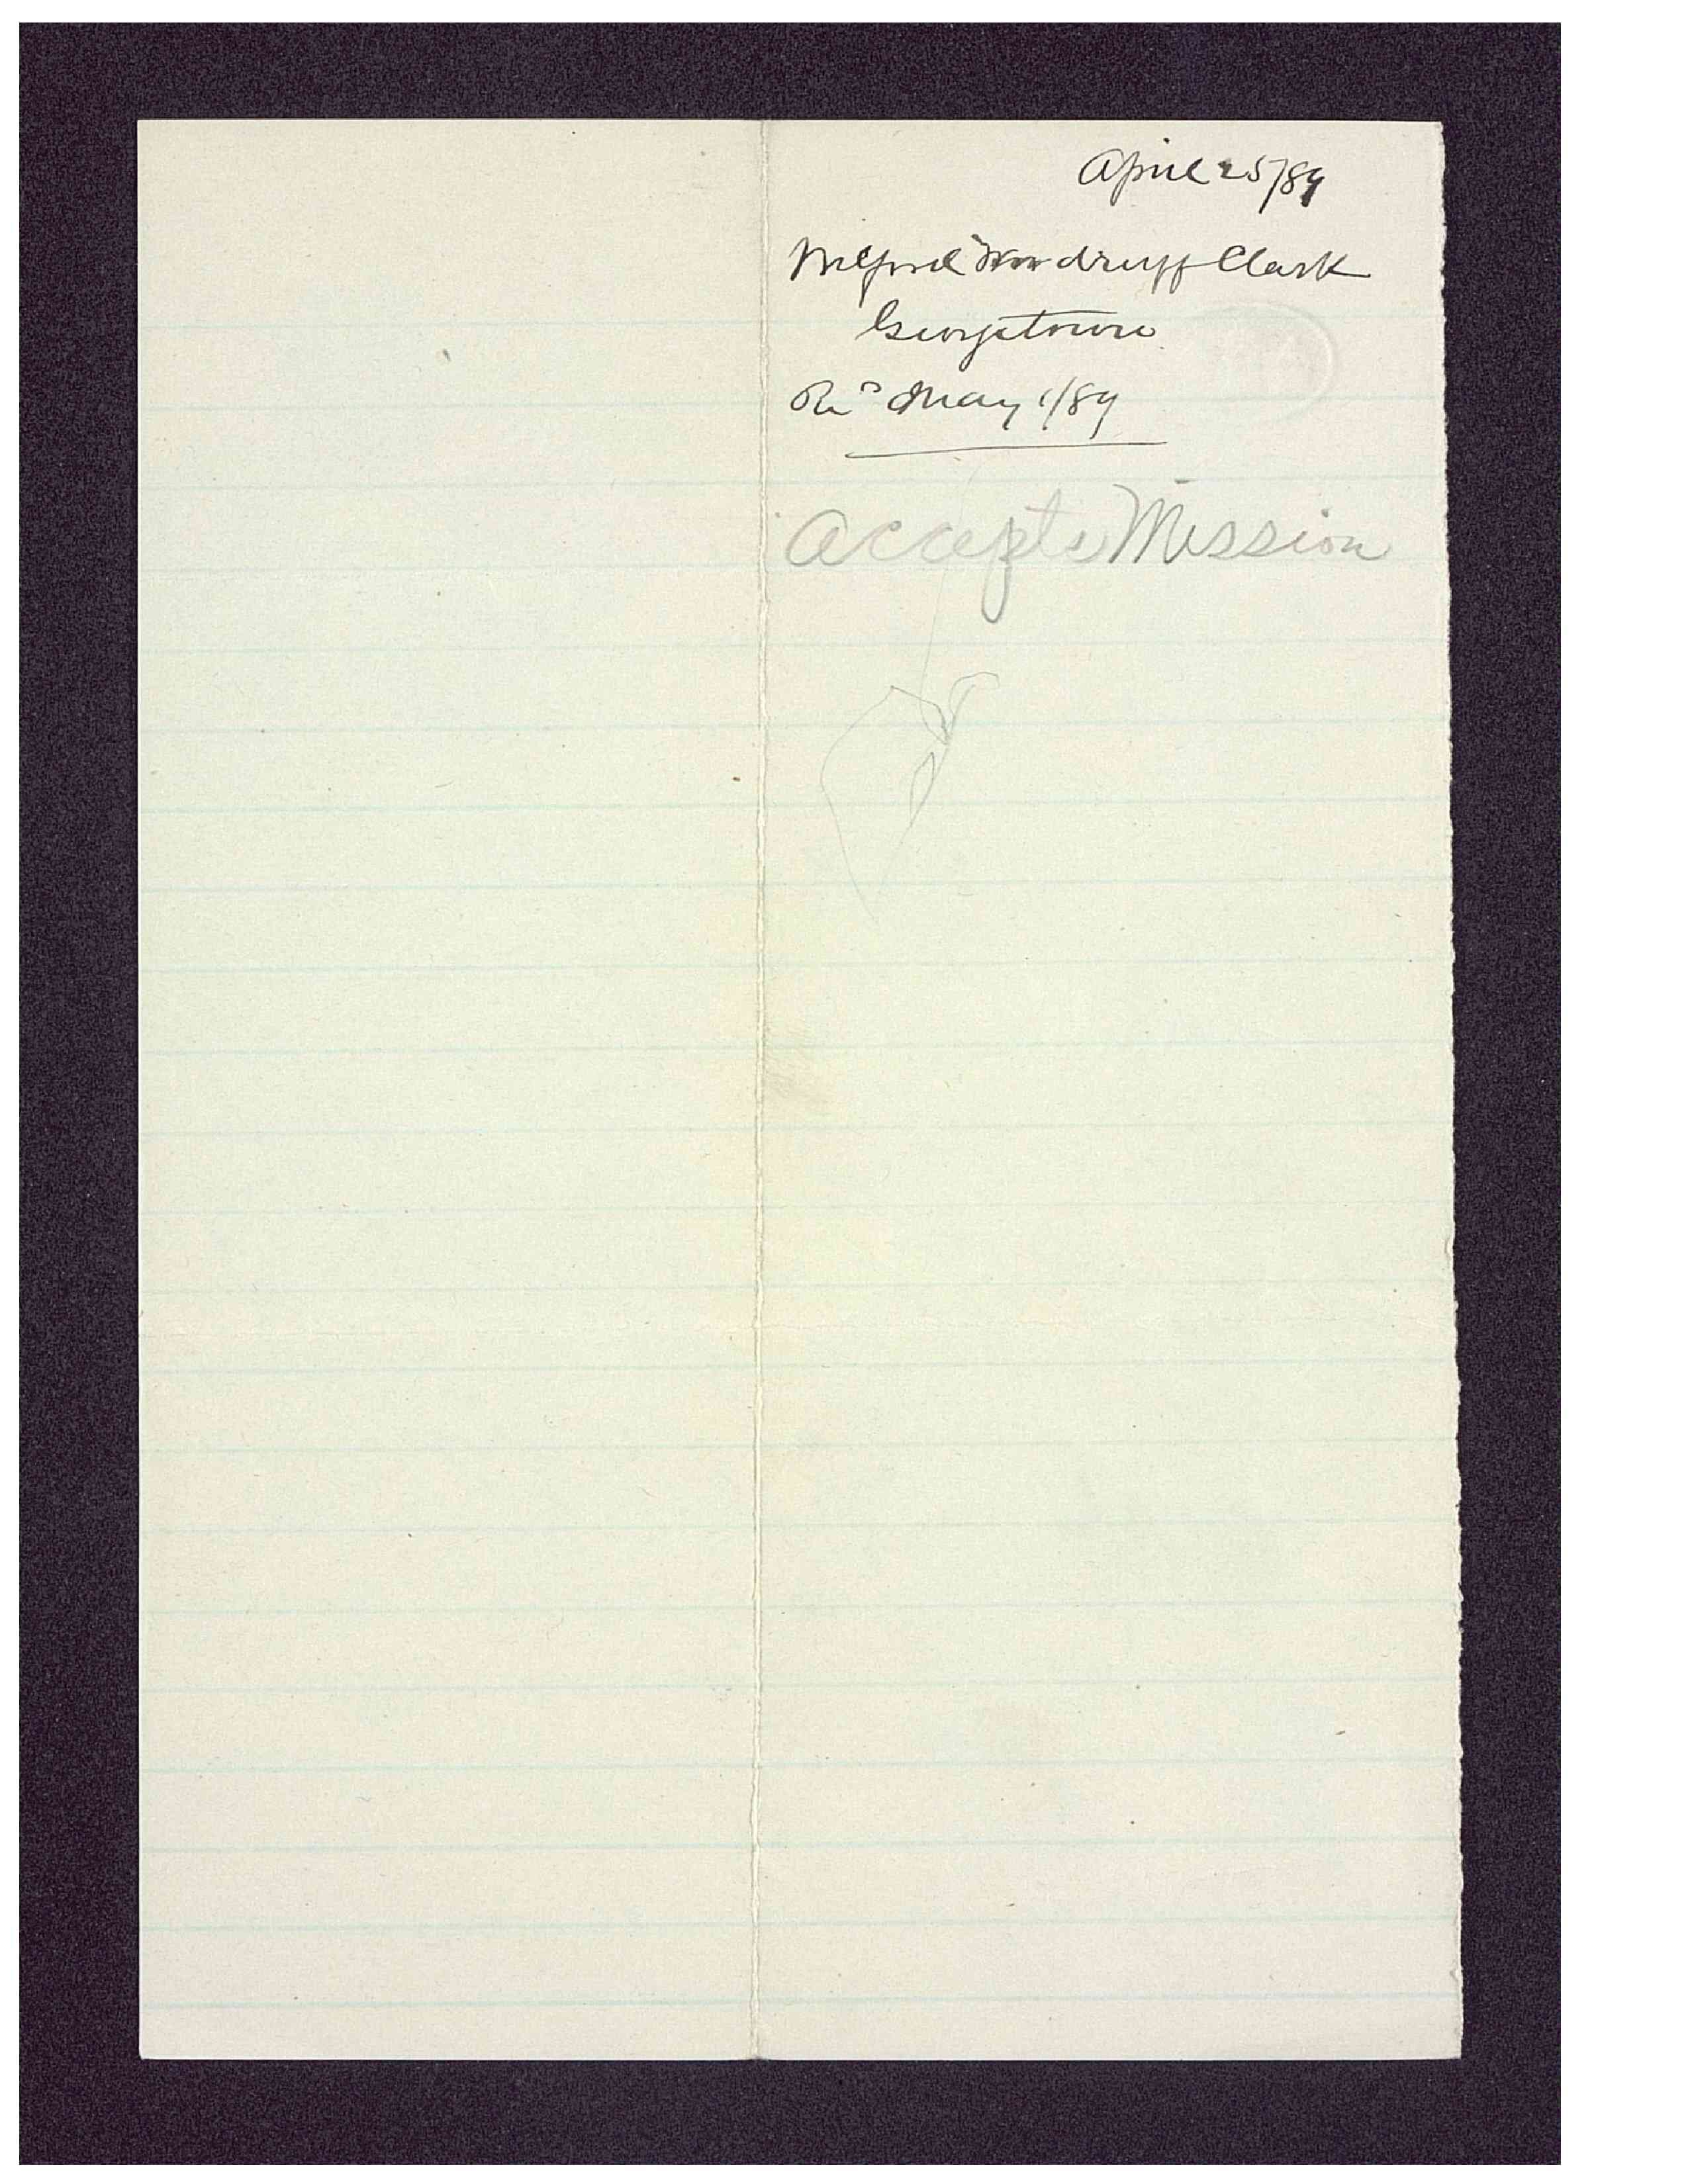 April 25/89
Wilford Woodruff Clark
Georgetown
Rec^d May 1/89
Accepts Mission